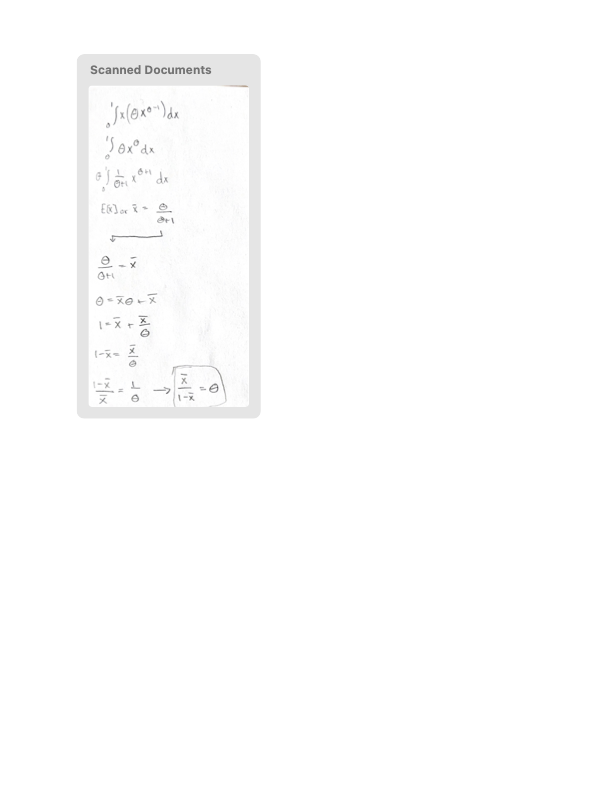 Scanned Documents
₀¹∫x(θx^(θ-1))dx
₀¹∫ θx^θ dx
θ ₀¹∫ 1/(θ+1) x^(θ+1) dx
E[x] or x̄ = θ/(θ+1)
θ/(θ+1) = x̄
θ = x̄θ + x̄
1 = x̄ + x̄/θ
1-x̄ = x̄/θ
(1-x̄)/x̄ = 1/θ → x̄/(1-x̄) = θ